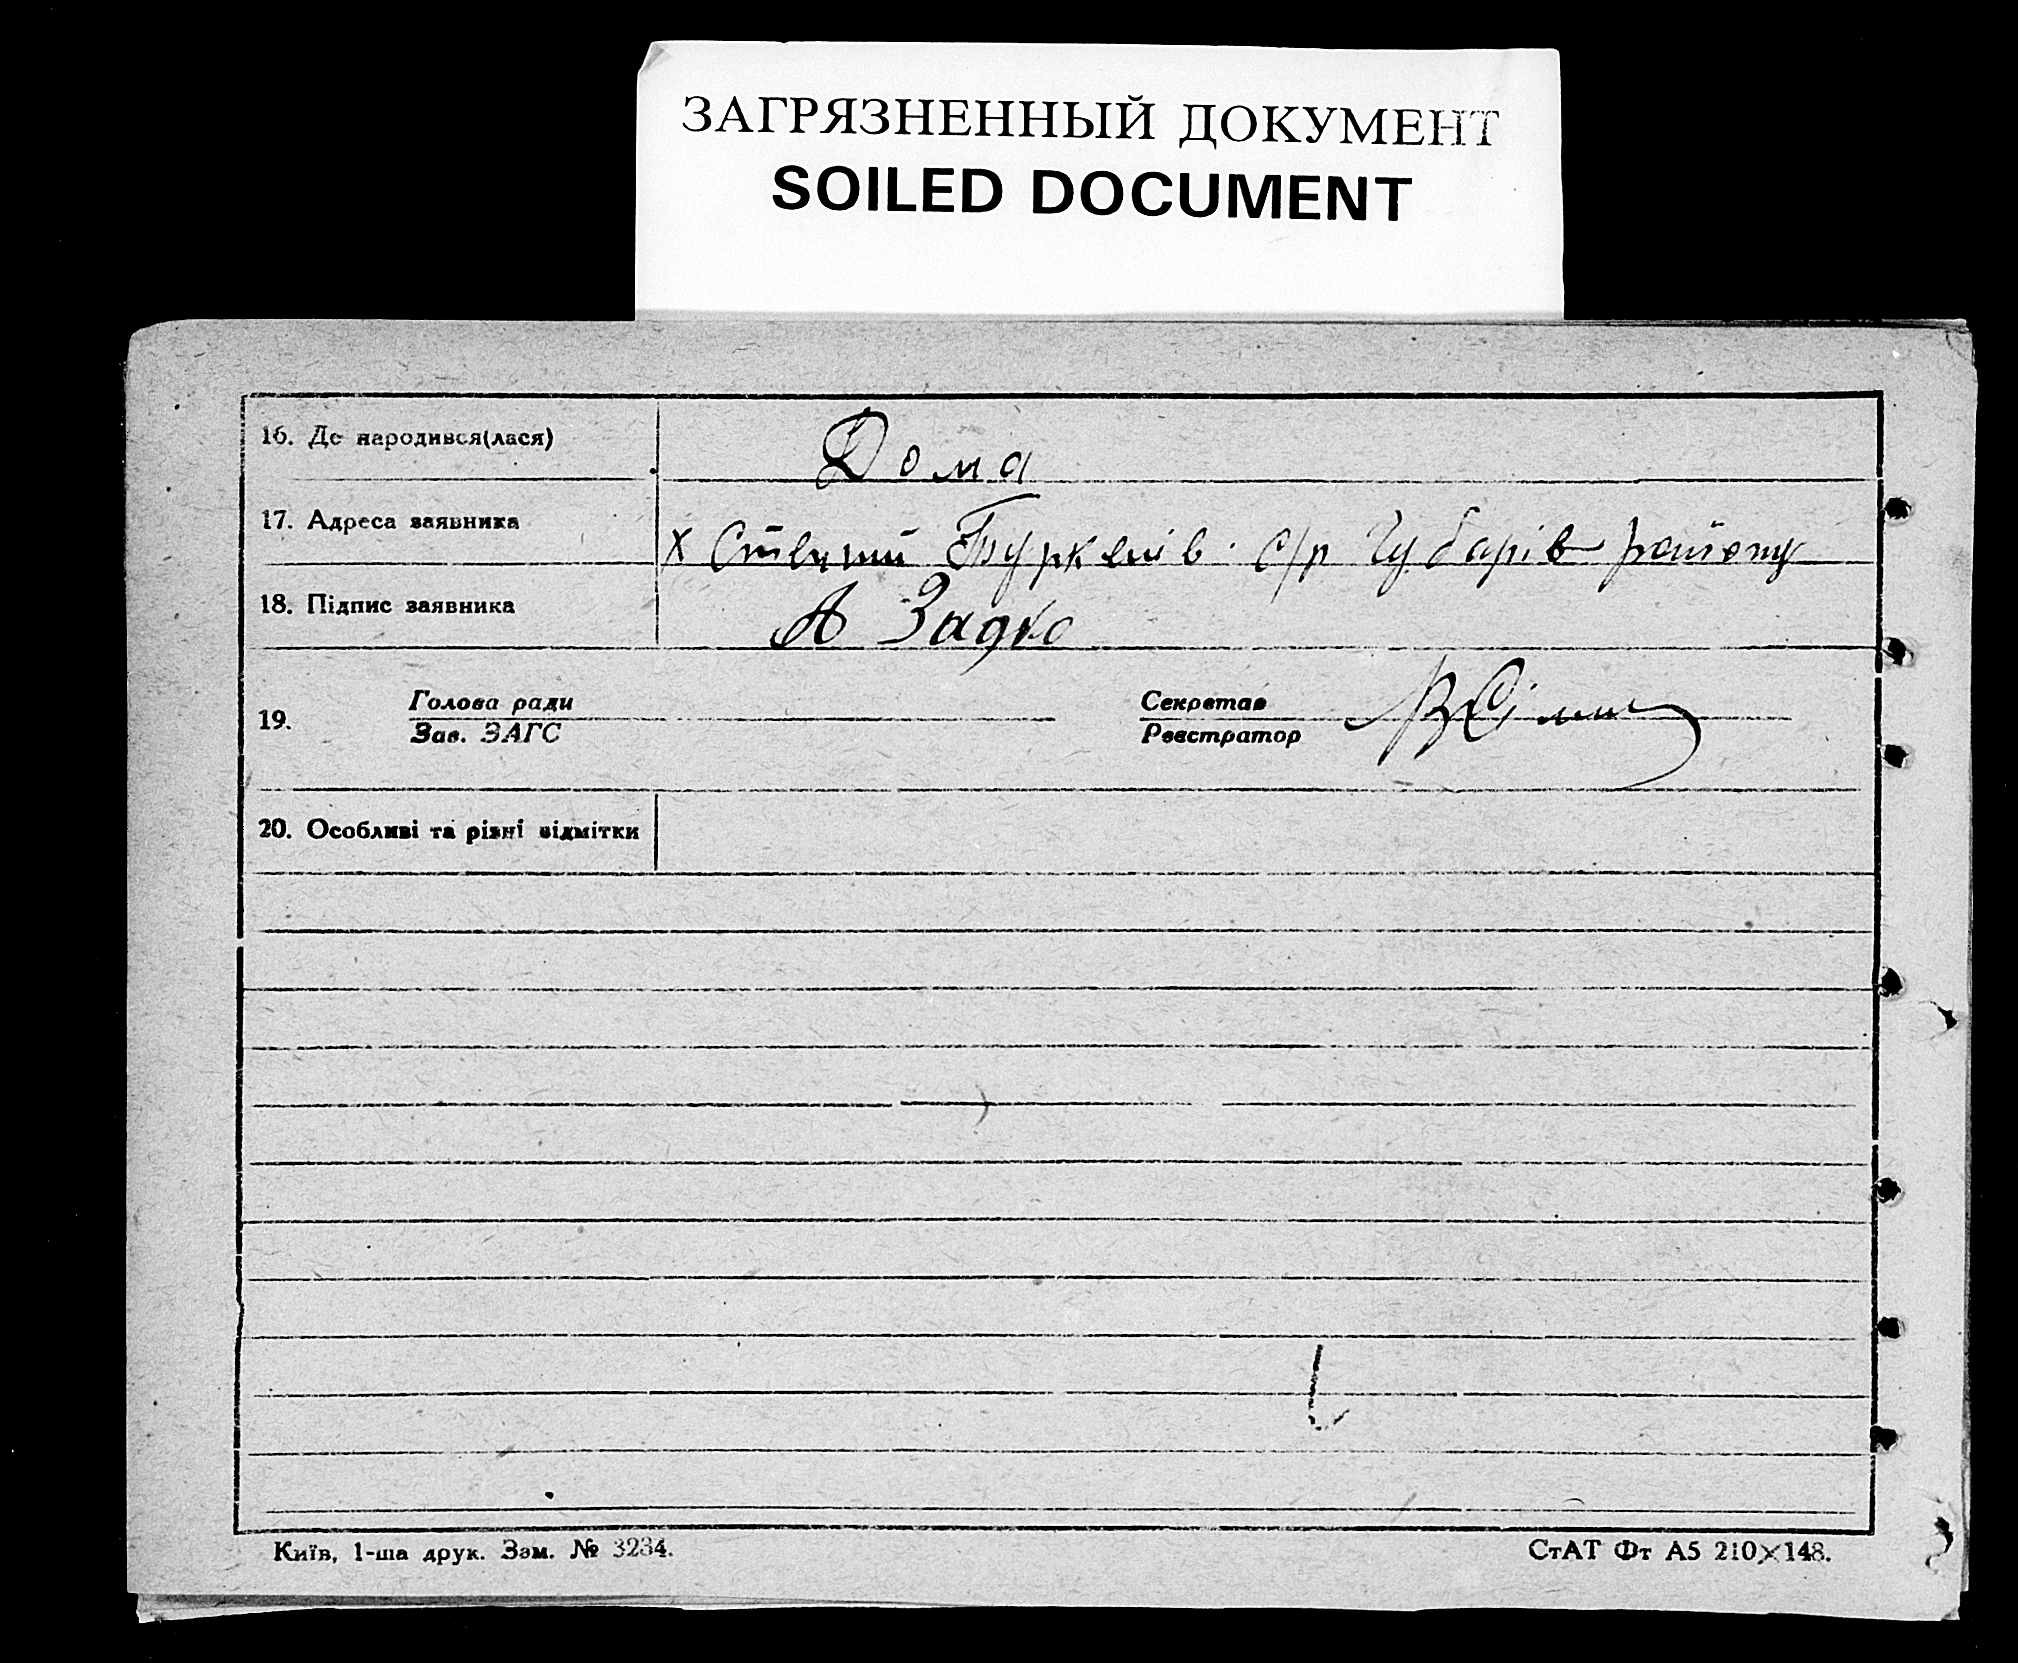 ЗАГРЯЗНЕННЫЙ ДОКУМЕНТ
SOILED DOCUMENT
16. Де народився(лася) Дома
17. Адреса заявника х с/р Чубарів району
18. Підпис заявника А Задко
19. Голова ради Секретар
Зав. ЗАГС Реєстратор
20. Особливі та різні відмітки
Київ, 1-ша друк. Зам. № 3234. СтАТ Фт А5 210×148.